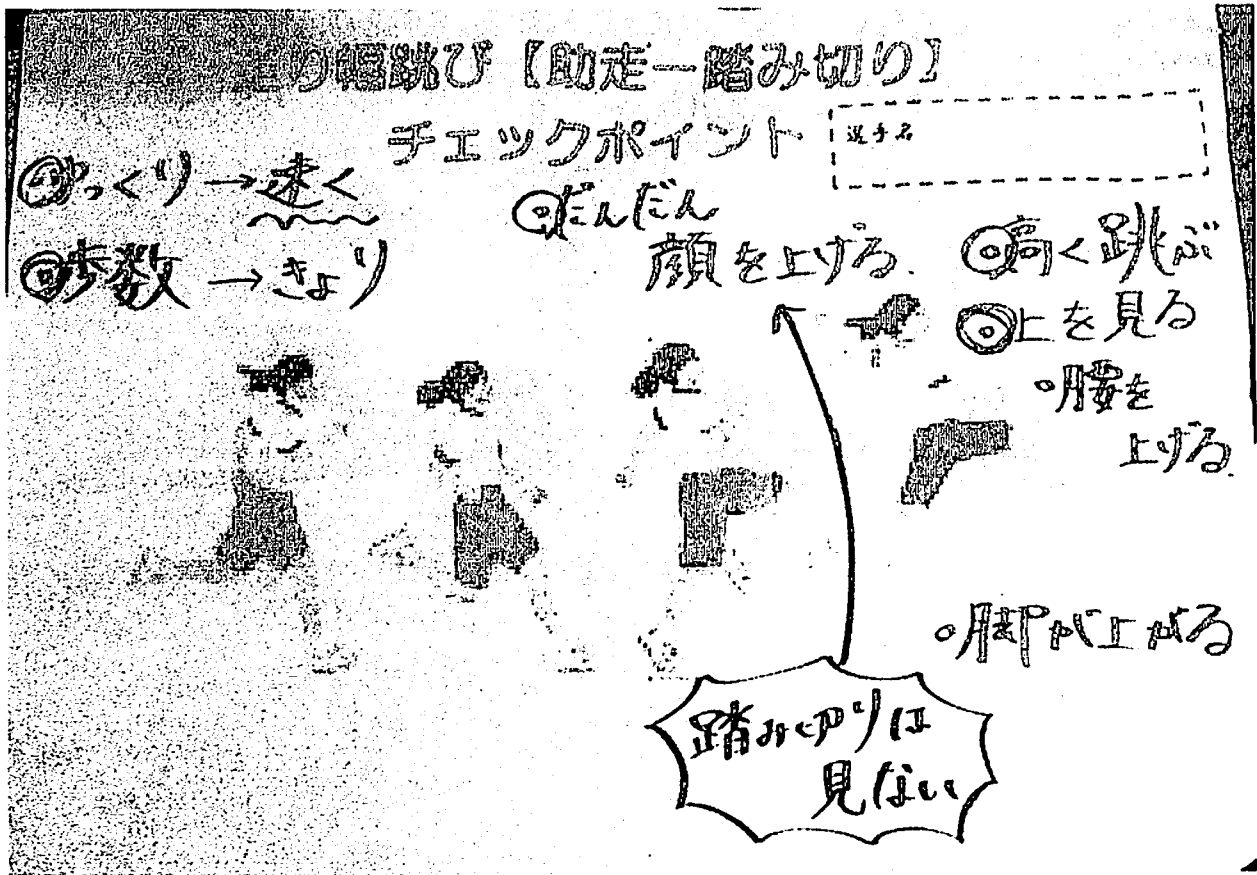 り幅跳び【助走ー踏み切り】
チェックポイント
選手名
◎ゆっくり→速く
◎歩数→きょり
◎だんだん
顔を上げる
◎高く跳ぶ
◎上を見る
・腰を
上げる
・脚が上がる
踏み切りは
見ない